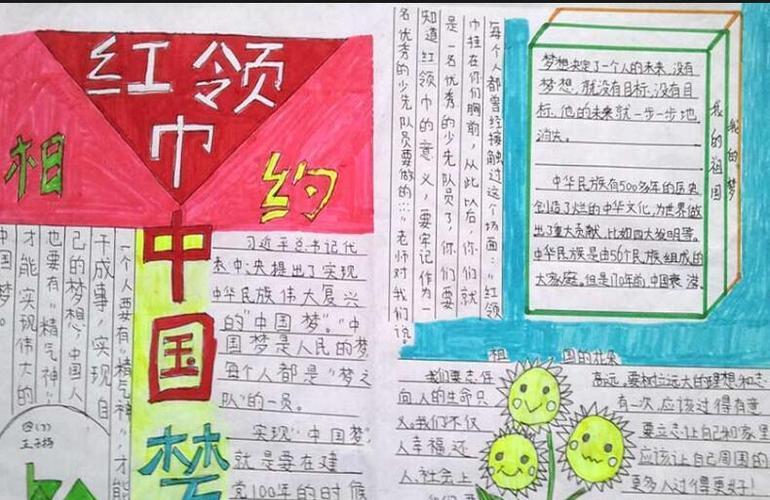 红领巾
相约
中国梦
一个人要有“精气神”才能
干成事，实现自
己的梦想，中国人
也要有“精气神”
才能实现伟大的
中国梦。
习近平总书记代
表中央提出了实现
中华民族伟大复兴
的“中国梦”。“中
国梦是人民的梦
每个人都是“梦之
队”的一员。
实现“中国梦”
就是要在建
党100年的时候
每个人都曾经接触过这个场面：“红领
巾挂在你们胸前，从此以后，你们就
是一名优秀的少先队员了，你们要
知道红领巾的意义，要牢记作为一
名优秀的少先队员要做的……”老师对我们说。
梦想决定了一个人的未来，没有
梦想，就没有目标，没有目
标，他的未来就一步一步地
消失。
中华民族有5000多年的历史
创造了灿烂的中华文化，为世界做
出了重大贡献，比如四大发明等。
中华民族是由56个民族组成的
大家庭。但是170年前，中国衰落
我的祖国
我的梦
我们要志存高远，要树立远大的理想和志
向人的生命只有一次，应该过得有意
义。我们不仅要立志让自己和家里
人幸福，还应该让自己周围的
人、社会上更多人过得更好！